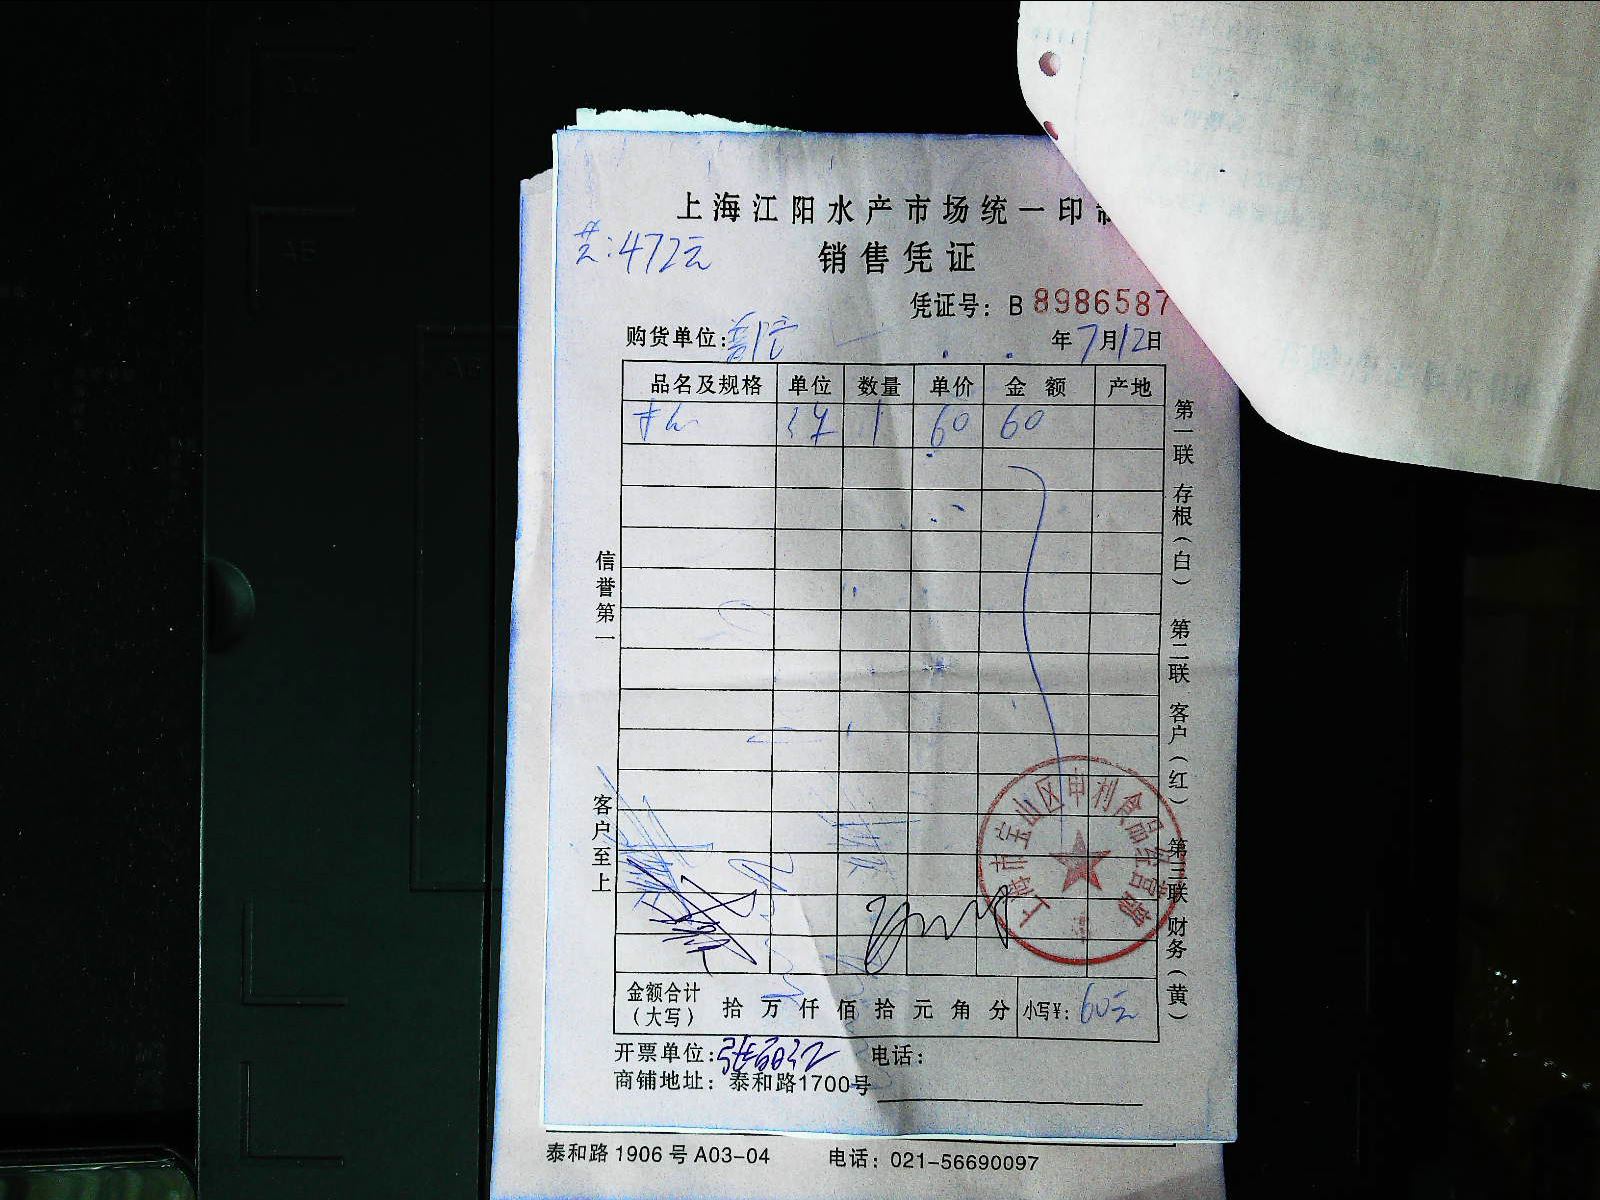 上海江阳水产市场统一印制
共:472元
销售凭证
凭证号: B 8986587
购货单位:
年7月12日
品名及规格 单位 数量 单价 金额 产地
1 60 60
信誉第一
客户至上
第一联 存根(白) 第二联 客户(红) 第三联 财务(黄)
上海市宝山区申利食品经营部
金额合计(大写) 拾 万 仟 佰 拾 元 角 分 小写¥: 60元
开票单位: 电话:
商铺地址: 泰和路1700号
泰和路 1906 号 A03-04 电话: 021-56690097